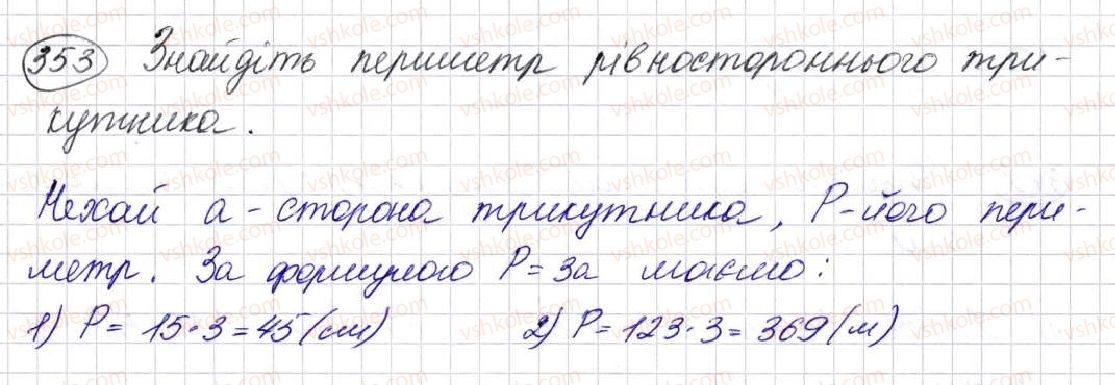 353 Знайдіть периметр рівностороннього три-
кутника.
Нехай a - сторона трикутника, P - його пери-
метр. За формулою P = 3a маємо:
1) P = 15 · 3 = 45 (см) 2) P = 123 · 3 = 369 (м)